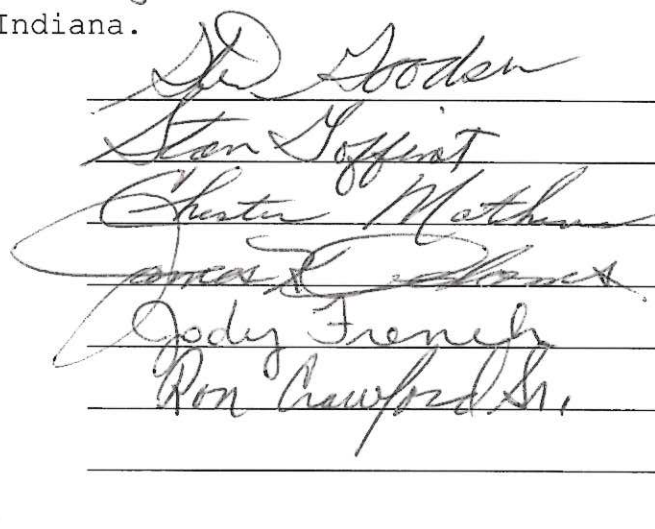 Indiana.
Goodson
Stan Goffinet
Chester Mathena
James
Jody French
Ron Crawford Sr.